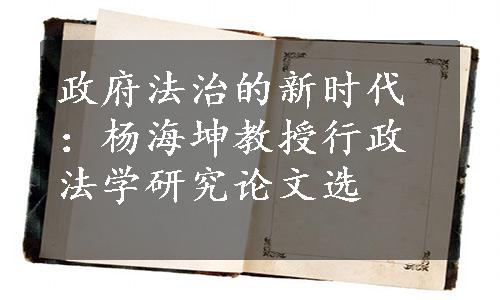 政府法治的新时代
：杨海坤教授行政
法学研究论文选